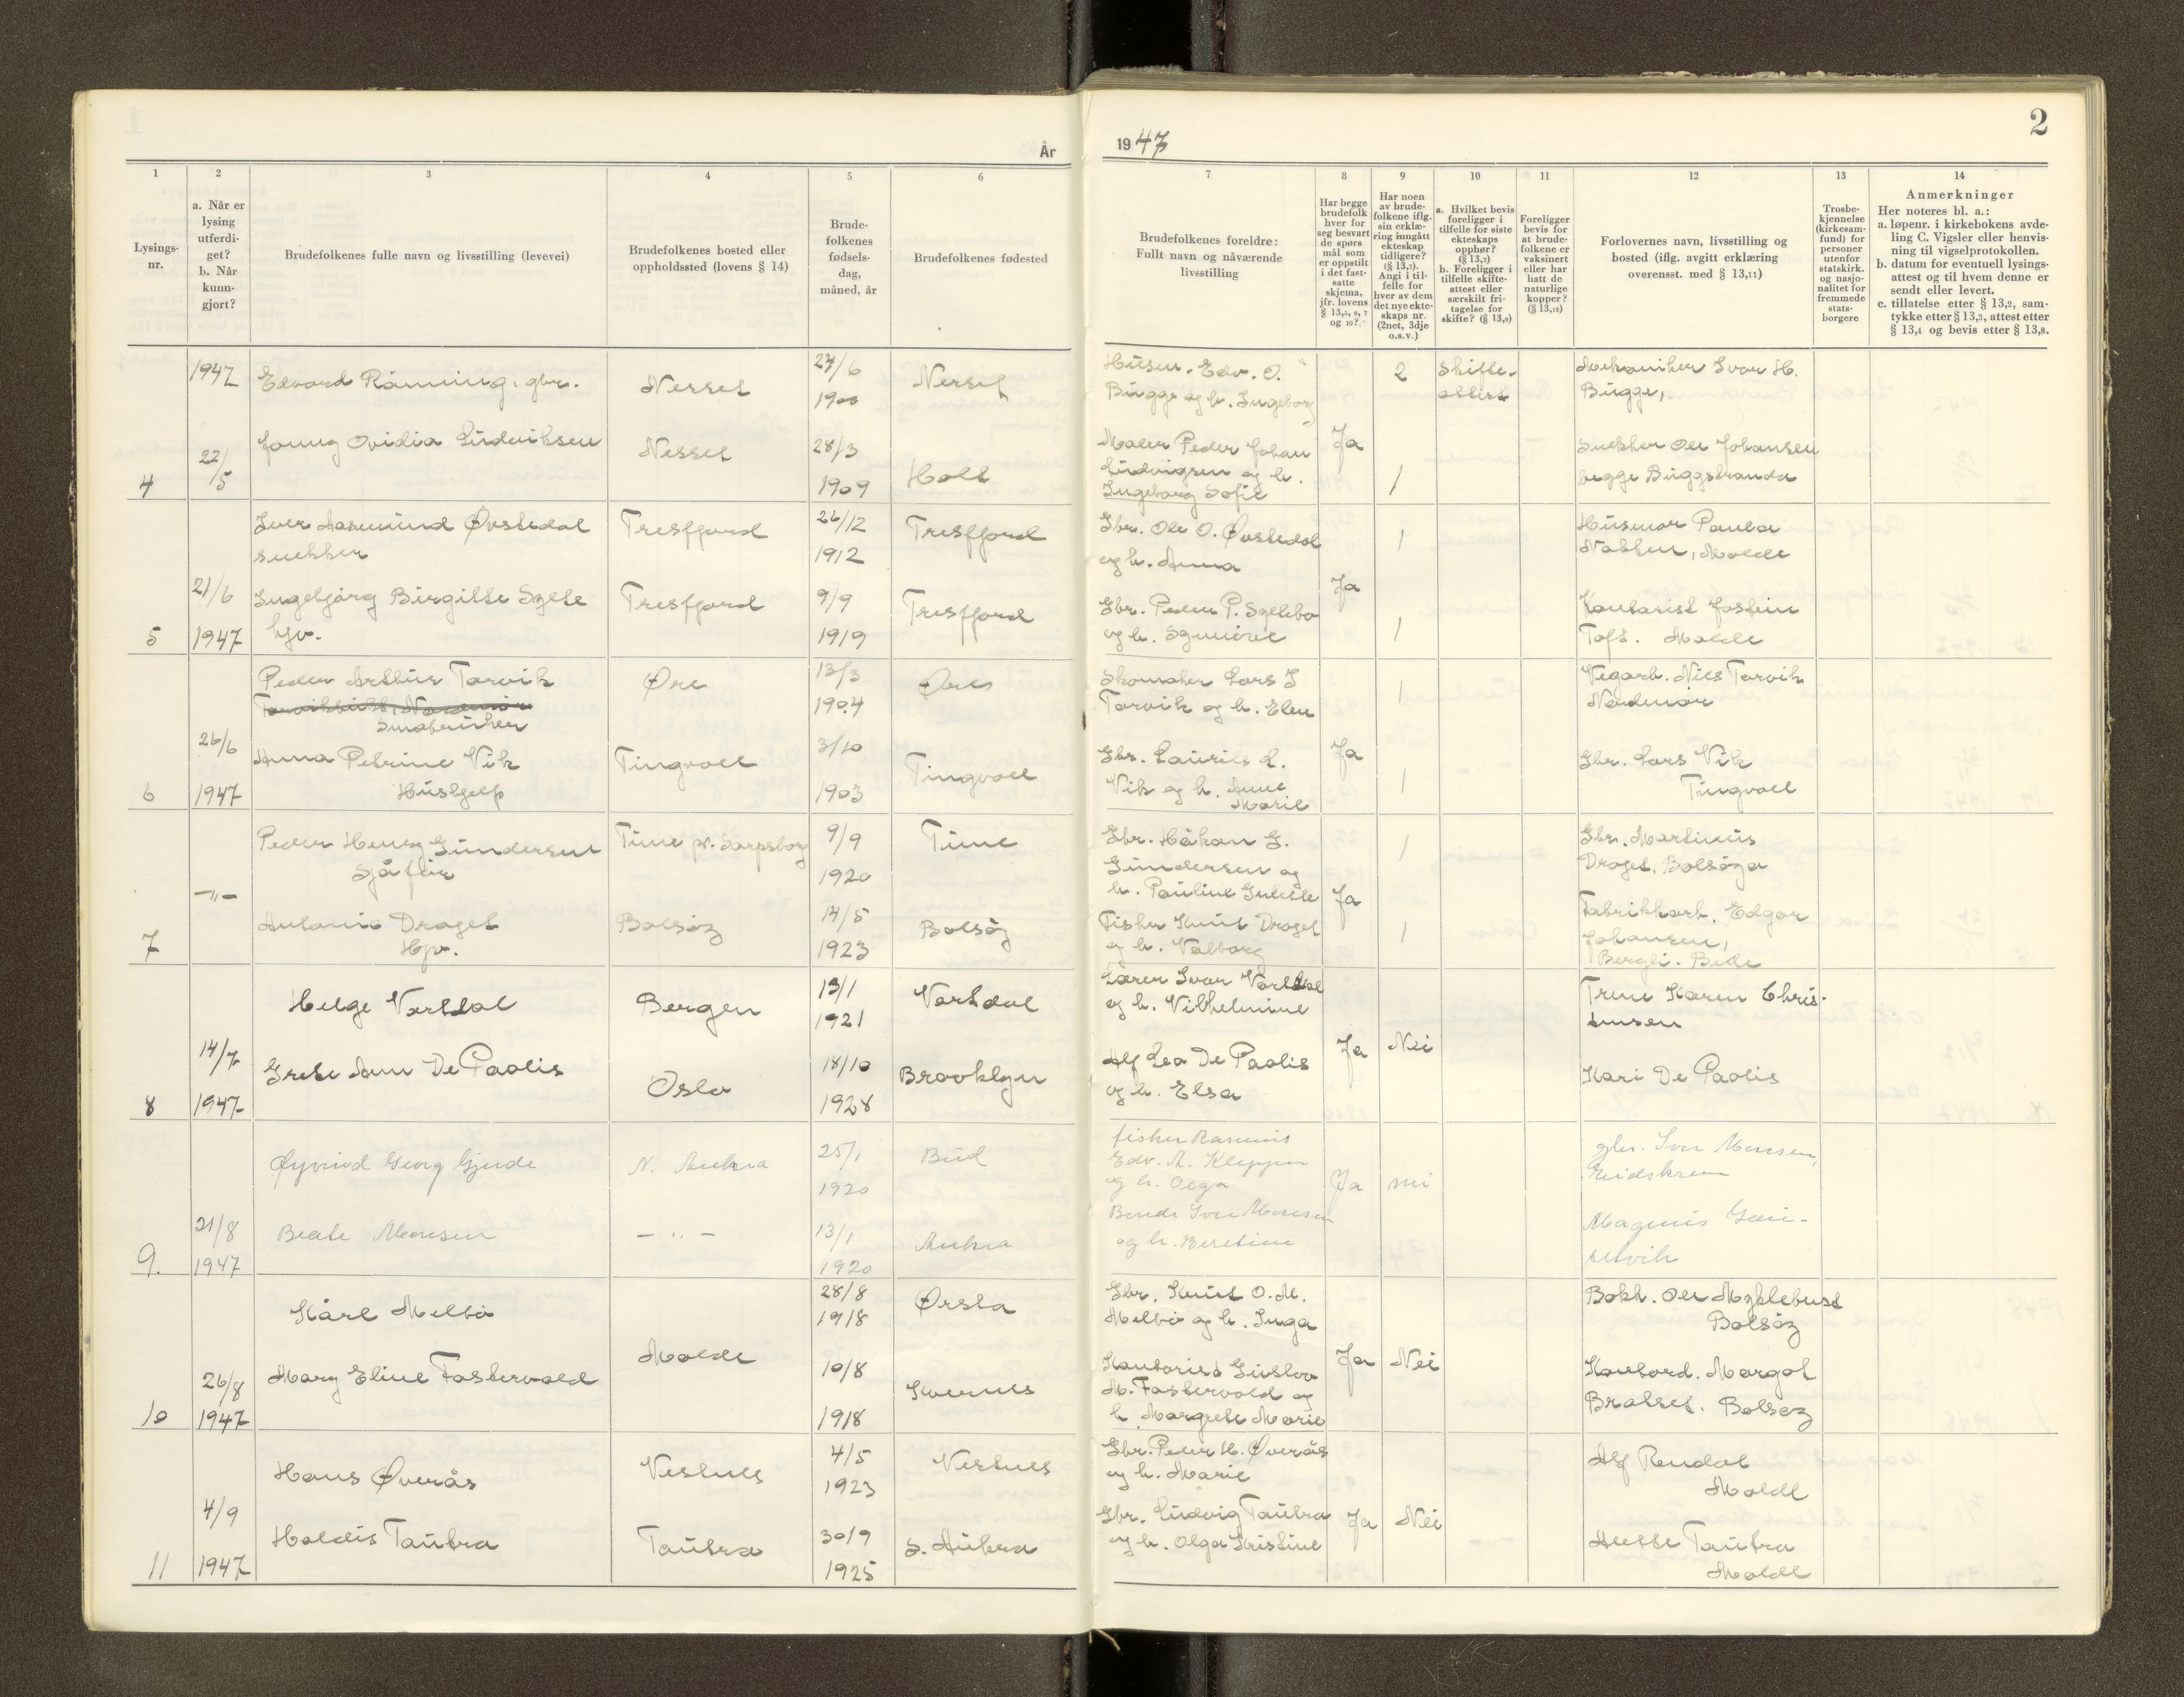 1
År
1947
2
1
2
3
4
5
6
7
8
9
10
11
12
13
14
Lysings-
nr.
a. Når er
lysing
utferdi-
get?
b. Når
kunn-
gjort?
Brudefolkenes fulle navn og livsstilling (levevei)
Brudefolkenes bosted eller
oppholdssted (lovens § 14)
Brude-
folkenes
fødsels-
dag,
måned, år
Brudefolkenes fødested
Brudefolkenes foreldre:
Fullt navn og nåværende
livsstilling
Har begge
brudefolk
hver for
seg besvart
de spørs
mål som
er oppstilt
i det fast-
satte
skjema,
jfr. lovens
§ 13,5, 6, 7
og 10?
Har noen
av brude-
folkene iflg.
sin erklæ-
ring inngått
ekteskap
tidligere?
(§ 13,7).
Angi i til-
felle for
hver av dem
det nye ekte-
skaps nr.
(2net, 3dje
o.s.v.)
a. Hvilket bevis
foreligger i
tilfelle for siste
ekteskaps
opphør?
(§ 13,7)
b. Foreligger i
tilfelle skifte-
attest eller
særskilt fri-
tagelse for
skifte? (§ 13,9)
Foreligger
bevis for
at brude-
folkene er
vaksinert
eller har
hatt de
naturlige
kopper?
(§ 13,12)
Forlovernes navn, livsstilling og
bosted (iflg. avgitt erklæring
overensst. med § 13,11)
Trosbe-
kjennelse
(kirkesam-
fund) for
personer
utenfor
statskirk.
og nasjo-
nalitet for
fremmede
stats-
borgere
Anmerkninger
Her noteres bl. a.:
a. løpenr. i kirkebokens avde-
ling C. Vigsler eller henvis-
ning til vigselprotokollen.
b. datum for eventuell lysings-
attest og til hvem denne er
sendt eller levert.
c. tillatelse etter § 13,2, sam-
tykke etter § 13,3, attest etter
§ 13,4 og bevis etter § 13,8.
1947
Edvard Rønning, gbr.
Nesset
27/6
1900
Nesset
Edv. O.
Bugge og h. Ingeborg
2
Skifte-
attest
Mekaniker Ivar H.
Bugge,
4
22/5
Jenny Ovidia Ludviksen
Nesset
28/3
1909
Holt
Maler Peder Johan
Ludvigsen og h.
Ingeborg Sofie
Ja
1
Snekker Ole Johansen
begge Buggstranda
Iver Aasmund Øvstedal
snekker
Tresfjord
26/12
1912
Tresfjord
Gbr. Ole O. Øvstedal
og h. Anna
1
Husmor Paula
Nakken, Molde
5
21/6
1947
Ingebjørg Birgitte Sylte
hjv.
Tresfjord
9/9
1919
Tresfjord
Gbr. Peder P. Syltebø
og h. Synnøve
Ja
1
Kontorist Jostein
Toft. Molde
Peder Arthur Torvik
Småbruker
Øre
13/3
1904
Øre
Skomaker Lars J
Torvik og h. Elen
1
Vegarb. Nils Torvik
Nordmør
6
26/6
1947
Anna Petrine Vik
Hushjelp
Tingvoll
3/10
1903
Tingvoll
Gbr. Laurits L.
Vik og h. Anne
Marie
Ja
1
Gbr. Lars Vik
Tingvoll
Peder Henry Gundersen
Sjåfør
Tune pr. Sarpsborg
9/9
1920
Tune
Gbr. Håkon G.
Gundersen og
h. Pauline
1
Gbr. Martinus
Draget, Bolsøya
7
-"-
Antonie Draget
Hjv.
Bolsøy
14/5
1923
Bolsøy
Fisker Knut Draget
og h. Valborg
Ja
1
Fabrikkarb. Edgar
Johansen,
Bergli. Bode
Helge Vartdal
Bergen
13/1
1921
Vartdal
Lærer Ivar Vartdal
og h. Vilhelmine
Trine Karen Chris-
tensen
8
14/7
1947
Grete Ann De Paolis
Oslo
18/10
1928
Brooklyn
Alf Leo De Paolis
og h. Elsa
Ja
Nei
Kari De Paolis
Øyvind Georg Gjerde
N. Aukra
25/1
1920
Bud
fisker Rasmus
Edv. A. Kleppen
og h. Olga
Ja
nei
gbr. Iver Monsen,
Eidskrem
9.
21/8
1947
Beate Monsen
- " -
13/1
1920
Aukra
Bonde Iver Monsen
og h. Beretine
Magnus Gau-
setvik
Kåre Melbø
28/8
1918
Ørsta
Gbr. Knut O. M.
Melbø og h. Inga
Bokh. Ole Myklebust
Bolsøy
10
26/8
1947
Mary Eline Fostervold
Molde
10/8
1918
Kvernes
Kontorist Gustav
M. Fostervold og
h. Margrete Marie
Ja
Nei
Kontord. Margot
Bratset. Bolsøy
Hans Øverås
Vestnes
4/5
1923
Vestnes
Gbr. Peder H. Øverås
og h. Marie
Alf Rendal
Molde
11
4/9
1947
Haldis Tautra
Tautra
30/9
1925
S. Aukra
Gbr. Ludvig Tautra
og h. Olga Kristine
Ja
Nei
Tautra
Molde